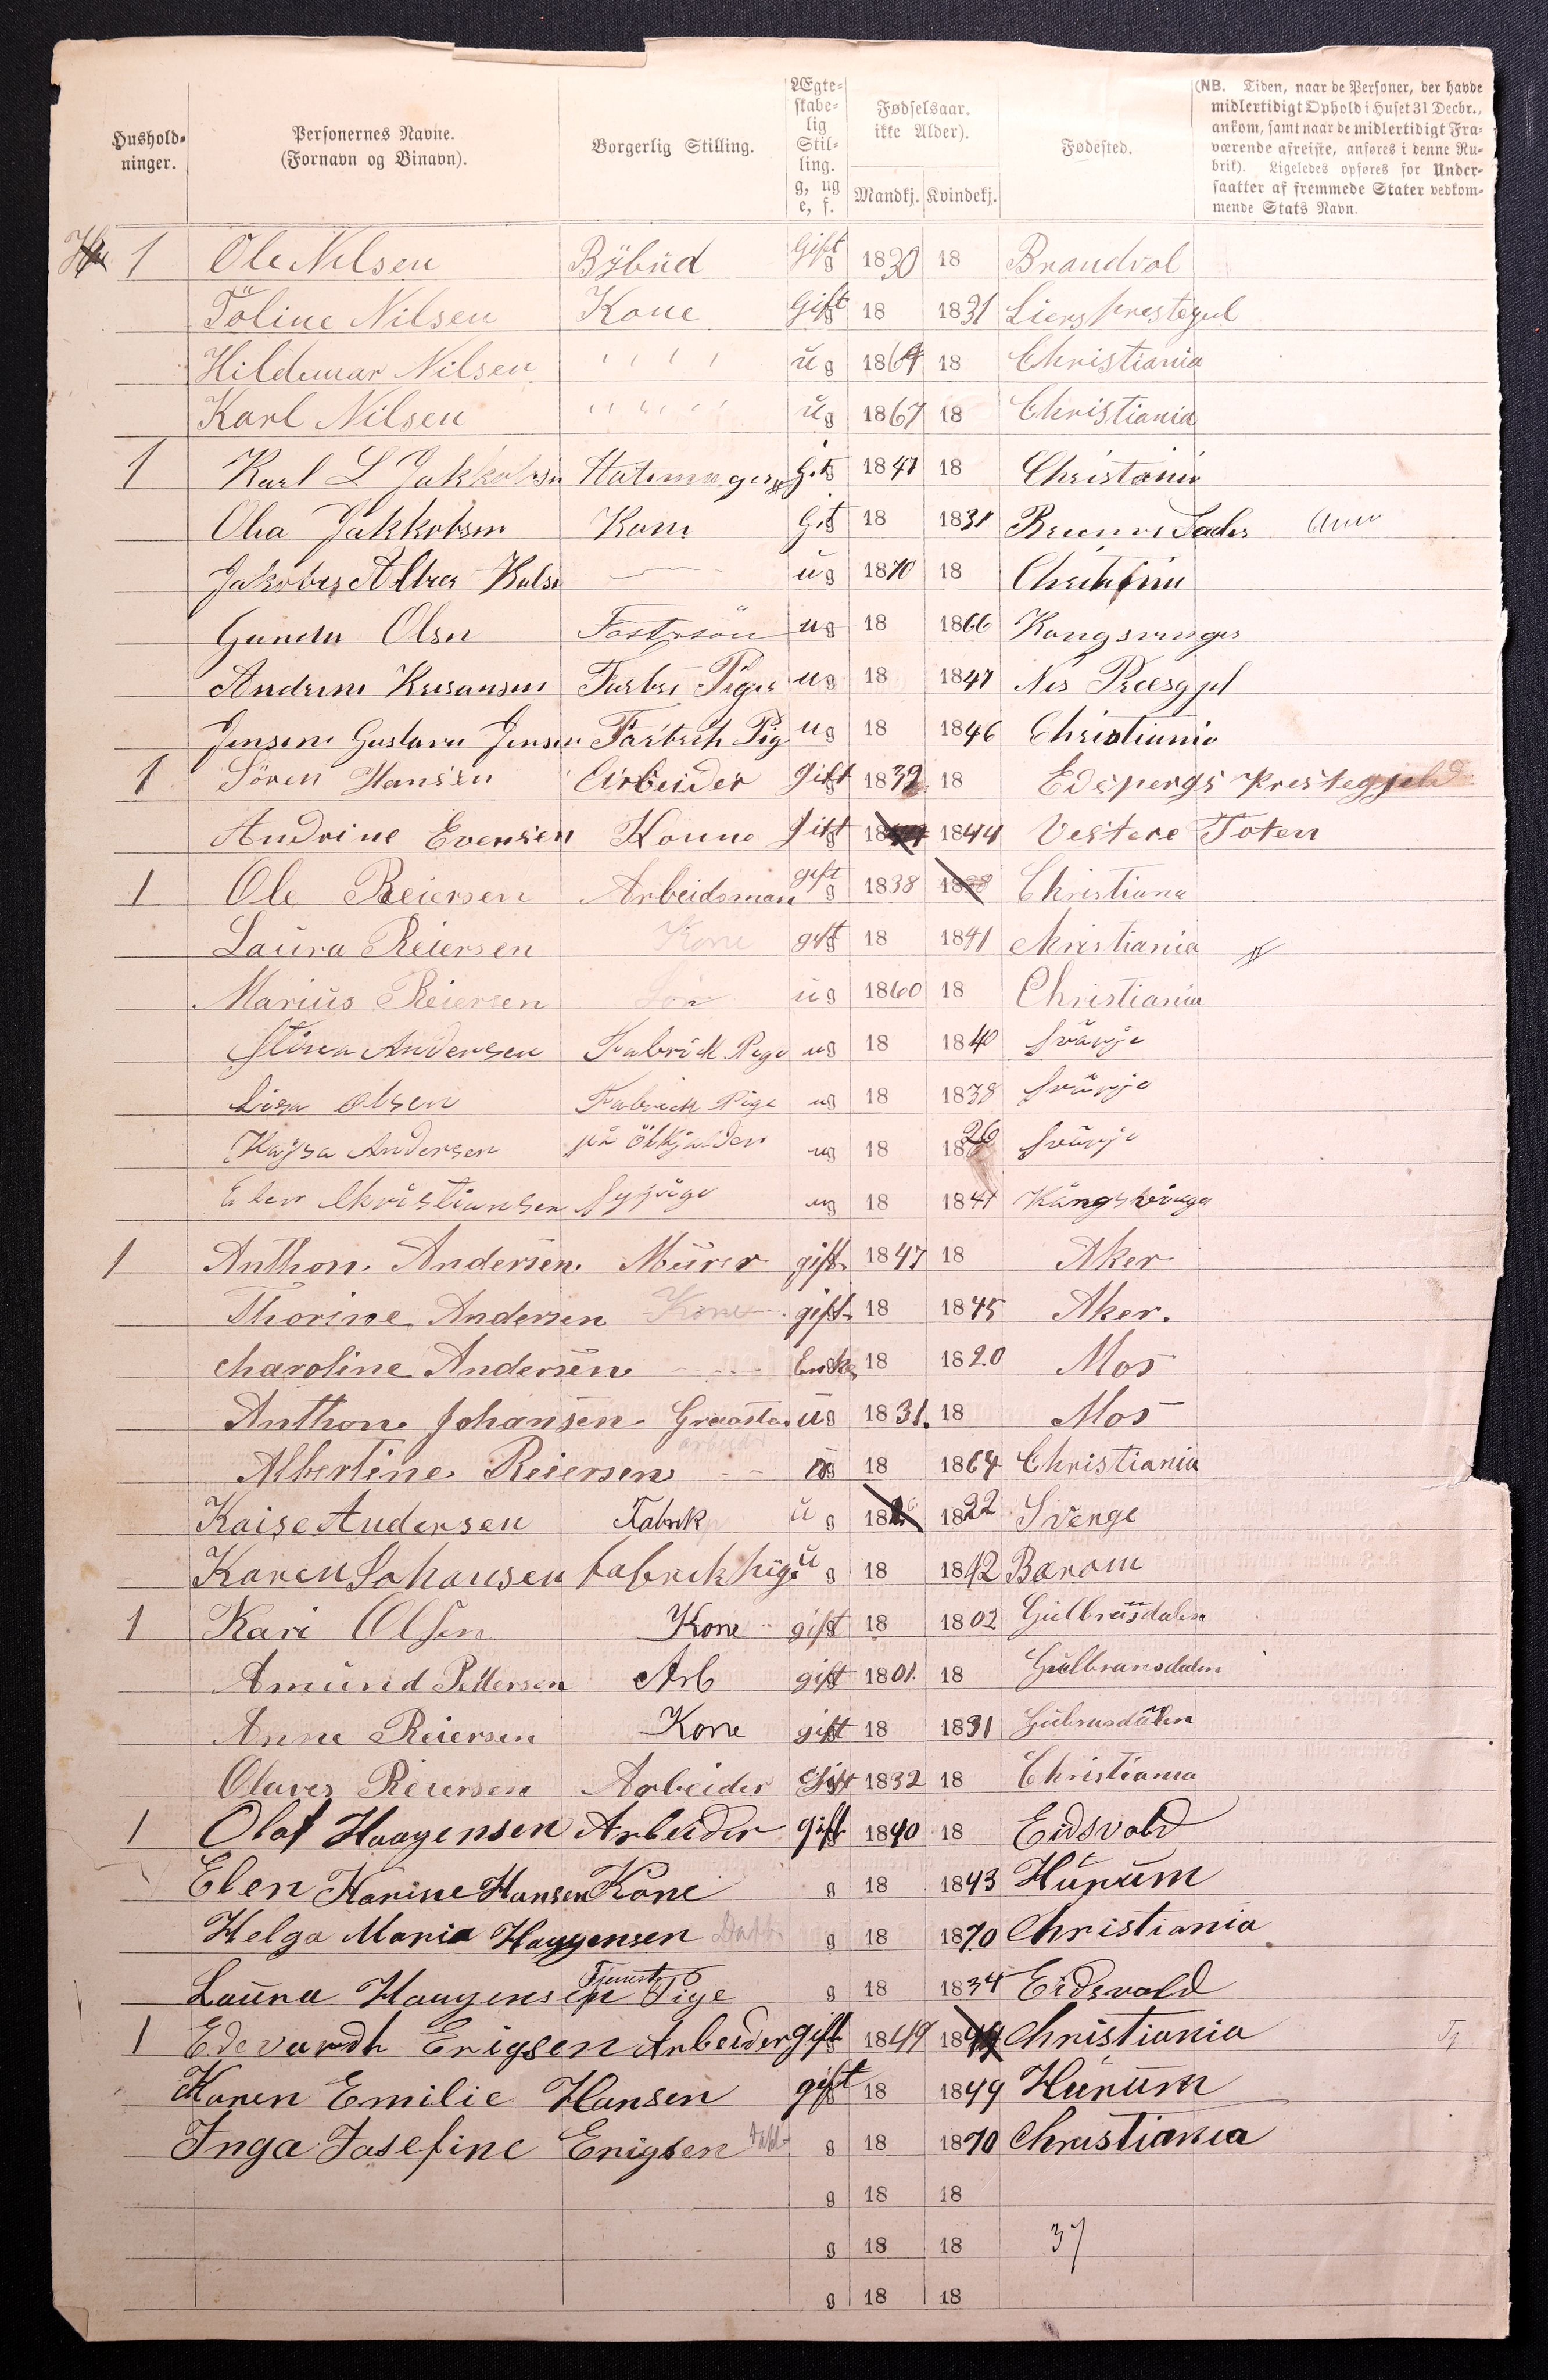 Hushold-
ninger.
Personernes Navne.
(Fornavn og Binavn).
Borgerlig Stilling.
Ægte-
skabe-
lig
Stil-
ling.
g, ug
e, f.
Fødselsaar.
ikke Alder).
Mandkj. Kvindekj.
Fødested.
(NB. Tiden, naar de Personer, der havde
midlertidigt Ophold i Huset 31 Decbr.,
ankom, samt naar de midlertidigt Fra-
værende afreiste, anføres i denne Ru-
brik). Ligeledes opføres for Under-
saatter af fremmede Stater vedkom-
mende Stats Navn.
1 Ole Nilsen Bÿbud Gift g 1830 18 Brandvol
Töline Nilsen Kone Gift g 18 1831 Liers
Hildemar Nilsen " " " " ug 1864 18 Christiania
Karl Nilsen " " " " ug 1867 18 Christiania
1 Karl L Jakkobsen Git g 1841 18 Christania
Jakkobsen Kone Git g 18 1831
ug 1870 18
Olsen ug 18 1866 Kongsvinger
ug 18 1847 Nes
Jensen ug 18 1846 Christiania
1 Sören Hansen Arbeider gift g 1839 18 Edspergs Prestegjeld
Andrine Evensen Konne gift g 18 1844 Vestere Toten
1 Ole Reiersen Arbeidsman gift g 1838 18 Christiana
Laura Reiersen Kone gift g 18 1841 Christiania
Marius Reiersen Sön ug 1860 18 Christiania
Stina Andersen Fabrick Pige ug 18 1840 Svärje
Lisa Olsen Fabrick Pige ug 18 1838 Svärje
Kajsa Andersen ug 18 1826 Svärje
Christiansen Sypige ug 18 1841
1 Anthon Andersen Murer gift 1847 18 Aker
Thorine Andersen Kone gift 18 1845 Aker.
Charoline Andersen Enke 18 1820 Mos
Anthon Johansen ug 1831. 18 Mos
Albertine Reiersen ug 18 1864 Christiania
Kaise Andersen Fabrik u g 18 1822 Svenge
Karen Johansen fabrik pige u g 18 1842 Barom
1 Kari Olsen Kone gift 18 1802 Gulbrasdalen
Amund Pettersen Arb gift 1801. 18 Gulbransdalen
Anne Reiersen Kone gift 18 1831 Gubrasdalen
Olaves Reiersen Arbeider Gift 1832 18 Christiania
1 Olaf Haagensen Arbeider gift 1840 18 Eidsvold
Elen Karine Hansen Kone g 18 1843 Hurum
Helga Maria Haagensen Datt. g 18 1870 Christiania
Laura Haagensen Tjeneste Pige g 18 1834 Eidsvold
1 Edevardh Erigsen Arbeider gift 1849 18 Christiania
Karen Emilie Hansen gift 18 1849 Hurum
Inga Josefine Erigsen Datt g 18 1870 Christiania
g 18 18
g 18 18 37
g 18 18